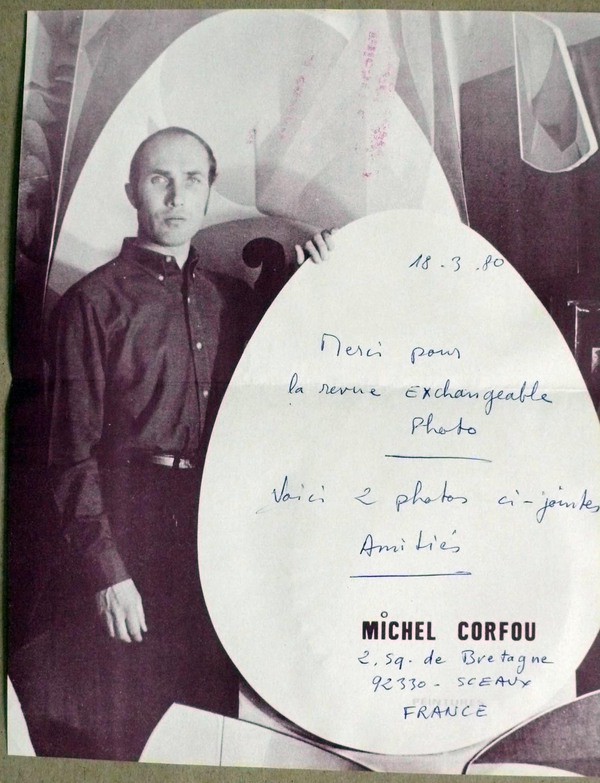 18.3.80
Merci pour
la revue EXchangeable
Photo
Voici 2 photos ci-jointes
Amitiés
MICHEL CORFOU
2, sq. de Bretagne
92330 - SCEAUX
FRANCE